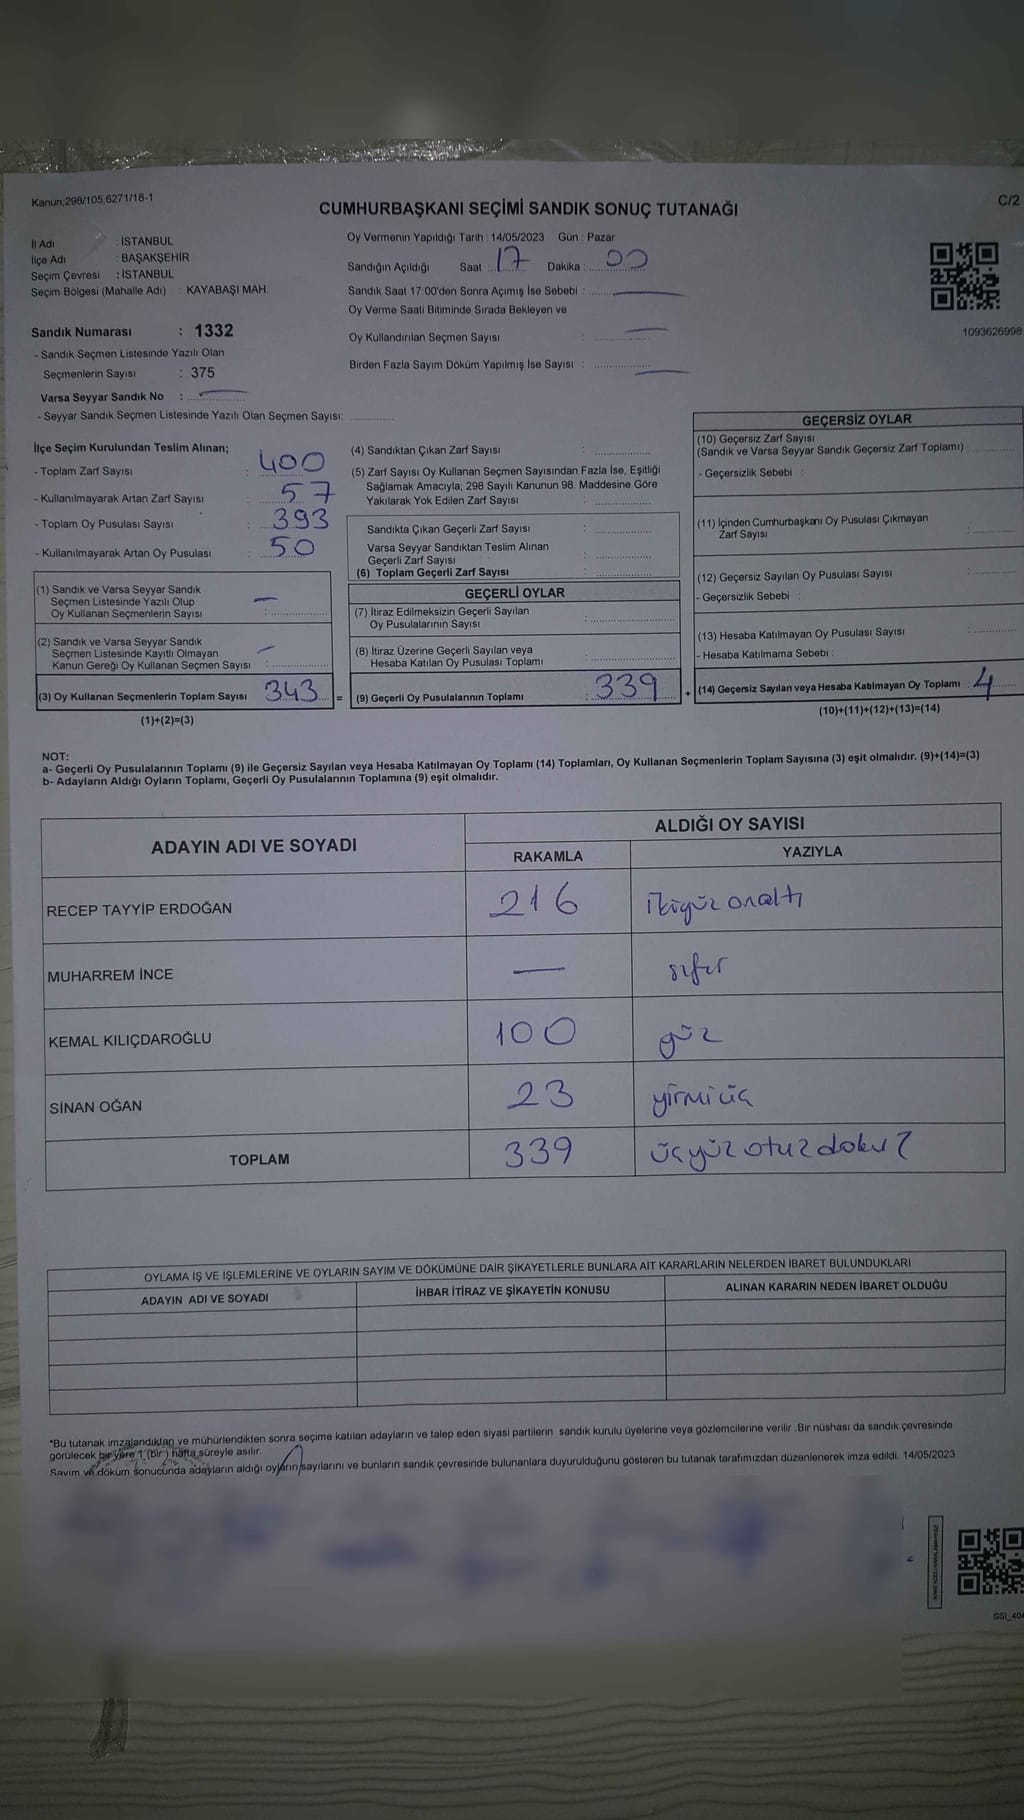 Kanun;298/105;6271/18-1
C/2
CUMHURBAŞKANI SEÇİMİ SANDIK SONUÇ TUTANAĞI
İl Adı : İSTANBUL
İlçe Adı : BAŞAKŞEHİR
Seçim Çevresi : İSTANBUL
Seçim Bölgesi (Mahalle Adı) : KAYABAŞI MAH.
Oy Vermenin Yapıldığı Tarih : 14/05/2023 Gün : Pazar
Sandığın Açıldığı Saat : 17 Dakika : 00
Sandık Saat 17:00'den Sonra Açımış İse Sebebi : —
Oy Verme Saati Bitiminde Sırada Bekleyen ve
Oy Kullandırılan Seçmen Sayısı : —
Birden Fazla Sayım Döküm Yapılmış İse Sayısı : —
1093626998
Sandık Numarası : 1332
- Sandık Seçmen Listesinde Yazılı Olan
Seçmenlerin Sayısı : 375
Varsa Seyyar Sandık No : —
- Seyyar Sandık Seçmen Listesinde Yazılı Olan Seçmen Sayısı:
İlçe Seçim Kurulundan Teslim Alınan;
- Toplam Zarf Sayısı : 400
- Kullanılmayarak Artan Zarf Sayısı : 57
- Toplam Oy Pusulası Sayısı : 393
- Kullanılmayarak Artan Oy Pusulası : 50
(1) Sandık ve Varsa Seyyar Sandık
Seçmen Listesinde Yazılı Olup
Oy Kullanan Seçmenlerin Sayısı : —
(2) Sandık ve Varsa Seyyar Sandık
Seçmen Listesinde Kayıtlı Olmayan
Kanun Gereği Oy Kullanan Seçmen Sayısı : —
(3) Oy Kullanan Seçmenlerin Toplam Sayısı 343 =
(1)+(2)=(3)
(4) Sandıktan Çıkan Zarf Sayısı :
(5) Zarf Sayısı Oy Kullanan Seçmen Sayısından Fazla İse, Eşitliği
Sağlamak Amacıyla; 298 Sayılı Kanunun 98. Maddesine Göre
Yakılarak Yok Edilen Zarf Sayısı :
Sandıkta Çıkan Geçerli Zarf Sayısı :
Varsa Seyyar Sandıktan Teslim Alınan
Geçerli Zarf Sayısı :
(6) Toplam Geçerli Zarf Sayısı :
GEÇERLİ OYLAR
(7) İtiraz Edilmeksizin Geçerli Sayılan
Oy Pusulalarının Sayısı :
(8) İtiraz Üzerine Geçerli Sayılan veya
Hesaba Katılan Oy Pusulası Toplamı :
(9) Geçerli Oy Pusulalarının Toplamı : 339 +
GEÇERSİZ OYLAR
(10) Geçersiz Zarf Sayısı
(Sandık ve Varsa Seyyar Sandık Geçersiz Zarf Toplamı) :
- Geçersizlik Sebebi :
(11) İçinden Cumhurbaşkanı Oy Pusulası Çıkmayan
Zarf Sayısı :
(12) Geçersiz Sayılan Oy Pusulası Sayısı :
- Geçersizlik Sebebi :
(13) Hesaba Katılmayan Oy Pusulası Sayısı :
- Hesaba Katılmama Sebebi :
(14) Geçersiz Sayılan veya Hesaba Katılmayan Oy Toplamı : 4
(10)+(11)+(12)+(13)=(14)
NOT:
a- Geçerli Oy Pusulalarının Toplamı (9) ile Geçersiz Sayılan veya Hesaba Katılmayan Oy Toplamı (14) Toplamları, Oy Kullanan Seçmenlerin Toplam Sayısına (3) eşit olmalıdır. (9)+(14)=(3)
b- Adayların Aldığı Oyların Toplamı, Geçerli Oy Pusulalarının Toplamına (9) eşit olmalıdır.
ADAYIN ADI VE SOYADI ALDIĞI OY SAYISI
RAKAMLA YAZIYLA
RECEP TAYYİP ERDOĞAN 216 ikiyüz onaltı
MUHARREM İNCE — sıfır
KEMAL KILIÇDAROĞLU 100 yüz
SİNAN OĞAN 23 yirmi üç
TOPLAM 339 üçyüz otuz dokuz
OYLAMA İŞ VE İŞLEMLERİNE VE OYLARIN SAYIM VE DÖKÜMÜNE DAİR ŞİKAYETLERLE BUNLARA AİT KARARLARIN NELERDEN İBARET BULUNDUKLARI
ADAYIN ADI VE SOYADI İHBAR İTİRAZ VE ŞİKAYETİN KONUSU ALINAN KARARIN NEDEN İBARET OLDUĞU
*Bu tutanak imzalandıktan ve mühürlendikten sonra seçime katılan adayların ve talep eden siyasi partilerin sandık kurulu üyelerine veya gözlemcilerine verilir. Bir nüshası da sandık çevresinde
görülecek bir yere 1 (bir) hafta süreyle asılır.
Sayım ve döküm sonucunda adayların aldığı oyların sayılarını ve bunların sandık çevresinde bulunanlara duyurulduğunu gösteren bu tutanak tarafımızdan düzenlenerek imza edildi. 14/05/2023